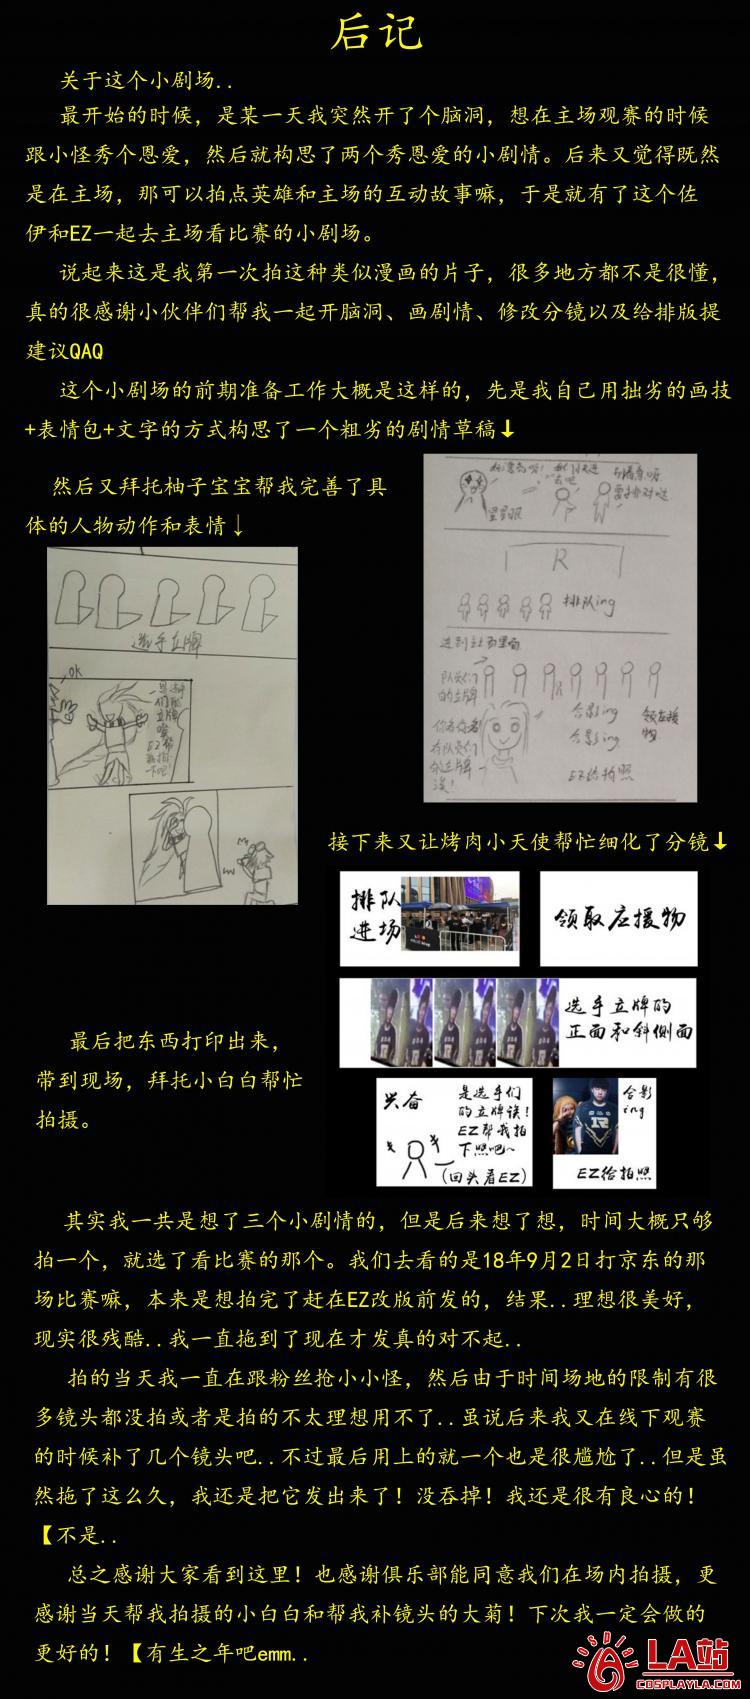 后记
关于这个小剧场..
最开始的时候，是某一天我突然开了个脑洞，想在主场观赛的时候
跟小怪秀个恩爱，然后就构思了两个秀恩爱的小剧情。后来又觉得既然
是在主场，那可以拍点英雄和主场的互动故事嘛，于是就有了这个佐
伊和EZ一起去主场看比赛的小剧场。
说起来这是我第一次拍这种类似漫画的片子，很多地方都不是很懂，
真的很感谢小伙伴们帮我一起开脑洞、画剧情、修改分镜以及给排版提
建议QAQ
这个小剧场的前期准备工作大概是这样的，先是我自己用拙劣的画技
+表情包+文字的方式构思了一个粗劣的剧情草稿↓
然后又拜托柚子宝宝帮我完善了具
体的人物动作和表情↓
星星眼
要排队哒
R
排队ing
进到主场里面
队员们
的立牌
合影ing
合影ing
领应援
物
EZ给拍照
选手立牌
OK
接下来又让烤肉小天使帮忙细化了分镜↓
排队
进场
领取应援物
选手立牌的
正面和斜侧面
兴奋
是选手们
的立牌诶！
EZ帮我拍
下照吧~
(回头看EZ)
合影
ing
EZ给拍照
最后把东西打印出来，
带到现场，拜托小白白帮忙
拍摄。
其实我一共是想了三个小剧情的，但是后来想了想，时间大概只够
拍一个，就选了看比赛的那个。我们去看的是18年9月2日打京东的那
场比赛嘛，本来是想拍完了赶在EZ改版前发的，结果..理想很美好，
现实很残酷..我一直拖到了现在才发真的对不起..
拍的当天我一直在跟粉丝抢小小怪，然后由于时间场地的限制有很
多镜头都没拍或者是拍的不太理想用不了..虽说后来我又在线下观赛
的时候补了几个镜头吧..不过最后用上的就一个也是很尴尬了..但是虽
然拖了这么久，我还是把它发出来了！没吞掉！我还是很有良心的！
【不是..
总之感谢大家看到这里！也感谢俱乐部能同意我们在场内拍摄，更
感谢当天帮我拍摄的小白白和帮我补镜头的大菊！下次我一定会做的
更好的！【有生之年吧emm..
LA站
COSPLAYLA.COM